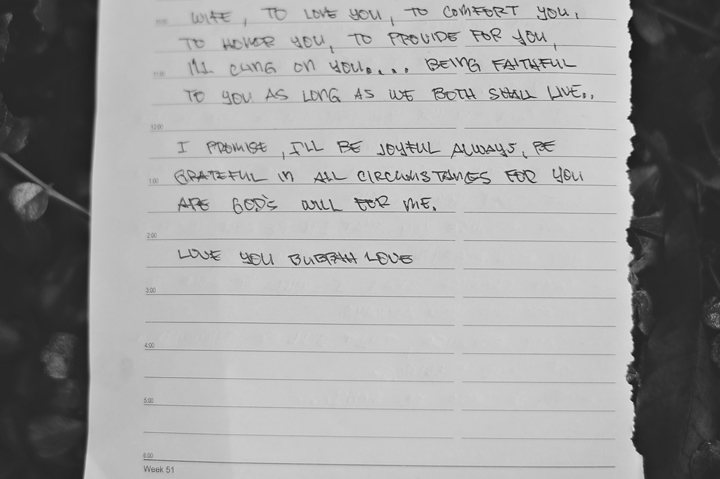 WIFE, TO LOVE YOU, TO COMFORT YOU,
TO HONOR YOU, TO PROVIDE FOR YOU,
11:00
I'LL CLING ON YOU.... BEING FAITHFUL
TO YOU AS LONG AS WE BOTH SHALL LIVE..
12:00
I PROMISE, I'LL BE JOYFUL ALWAYS, BE
1:00
GRATEFUL IN ALL CIRCUMSTANCES FOR YOU
ARE GOD'S WILL FOR ME.
2:00
LOVE YOU BUBBAH LOVE
3:00
4:00
5:00
6:00
Week 51